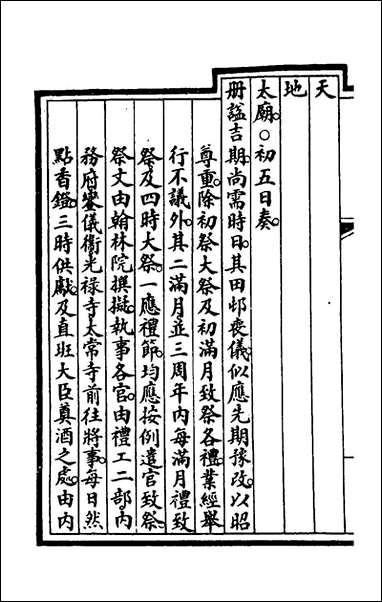 天
地
太廟○初五日奏
册謚吉期尚需時日其田邨喪儀似應先期豫改以昭
尊重除初祭大祭及初滿月致祭各禮業經舉
行不議外其二滿月並三周年内每滿月禮致
祭及四時大祭一應禮節均應按例遣官致祭
祭文由翰林院撰擬執事各官由禮工二部内
務府鑾儀衞光禄寺太常寺前往將事每日然
點香鐙三時供獻及直班大臣奠酒之處由内